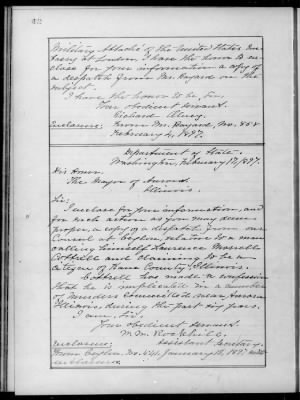 Military Attaché of the United States Em-
bassy at London. I have the honor to en-
close for your information a copy of
a despatch from Mr. Bayard on the
subject.
I have the honor to be, Sir,
Your obedient servant,
Richard Olney.
Enclosure: From Mr. Bayard, No. 858
February 4, 1897.
Department of State,
Washington, February 17, 1897.
His Honor
The Mayor of Aurora,
Illinois.
Sir:
I enclose for your information, and
for such action as you may deem
proper, a copy of a despatch from our
Consul at Ceylon, relative to a man
calling himself
Cottrell and claiming to be a
citizen of Kane County, Illinois.
Cottrell has made a confession
that he is implicated in a number
of murders committed near Aurora
Illinois, during the past six years.
I am, Sir,
Your obedient servant,
W. W. Rockhill,
Assistant Secretary.
Enclosure:
From Ceylon, No. 141, January 16, 1897 with
enclosure.